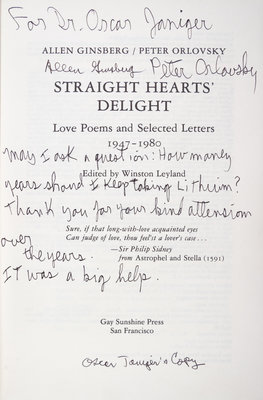 For Dr. Oscar Janiger
ALLEN GINSBERG / PETER ORLOVSKY
Allen Ginsberg Peter Orlovsky
STRAIGHT HEARTS'
DELIGHT
Love Poems and Selected Letters
1947–1980
May I ask a question: How maney
Edited by Winston Leyland
years should I Keep taking Lithium?
Thank you for your kind attension
Sure, if that long-with-love acquainted eyes
over
Can judge of love, thou feel'st a lover's case . . .
the years.
—Sir Philip Sidney
from Astrophel and Stella (1591)
IT was a big help.
Gay Sunshine Press
San Francisco
Oscar Janiger's Copy